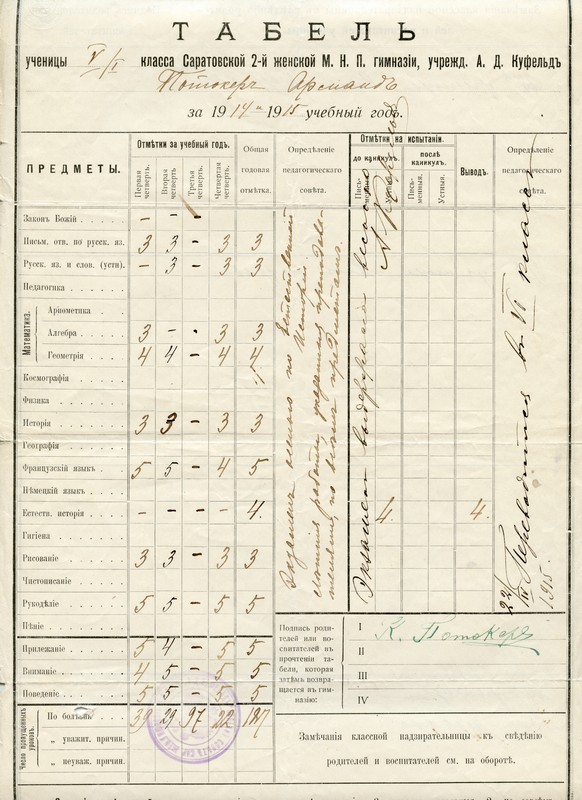 ТАБЕЛЬ
ученицы V/I класса Саратовской 2-й женской М. Н. П. гимназіи, учрежд. А. Д. Куфельдъ
Потокеръ Арсмандъ
за 1914 и 1915 учебный годъ.
ПРЕДМЕТЫ.
Отмѣтки за учебный годъ.
Первая четверть.
Вторая четверть
Третья четверть.
Четвертая четверть.
Общая годовая отмѣтка.
Опредѣленіе педагогическаго совѣта.
Отмѣтки на испытаніи.
до каникулъ.
послѣ каникулъ.
Письменныя.
Устныя.
Выводъ.
Опредѣленіе педагогическаго совѣта.
Законъ Божій - - -
Письм. отв. по русск. яз. 3 3 - 3 3
Русск. яз. и слов. (устн). - 3 - 3 3
Педагогика
Математика.
Ариѳметика
Алгебра 3 - - 3 3
Геометрія 4 4 - 4 4
Космографія
Физика
Исторія 3 3 - 3 3
Географія
Французскій языкъ 5 5 - 4 5
Нѣмецкій языкъ
Естеств. исторія - - - - 4. 4. 4.
Гигіена
Рисованіе 3 3 - 3 3
Чистописаніе
Рукодѣліе 5 5 - 5 5
Пѣніе
Прилежаніе 5 4 - 5 5
Вниманіе 4 5 - 5 5
Поведеніе 5 5 - 5 5
Число пропущенныхъ уроковъ.
По болѣзн. 39 29 97 22 187
„ уважит. причин.
„ неуваж. причин.
Экзаменъ выдержала
Переводится въ VI классъ
22/IV 1915.
Подпись родителей или воспитателей въ прочтеніи табеля, которая затѣмъ возвращается въ гимназію:
I К. Потокеръ
II
III
IV
Замѣчанія классной надзирательницы къ свѣдѣнію
родителей и воспитателей см. на оборотѣ.